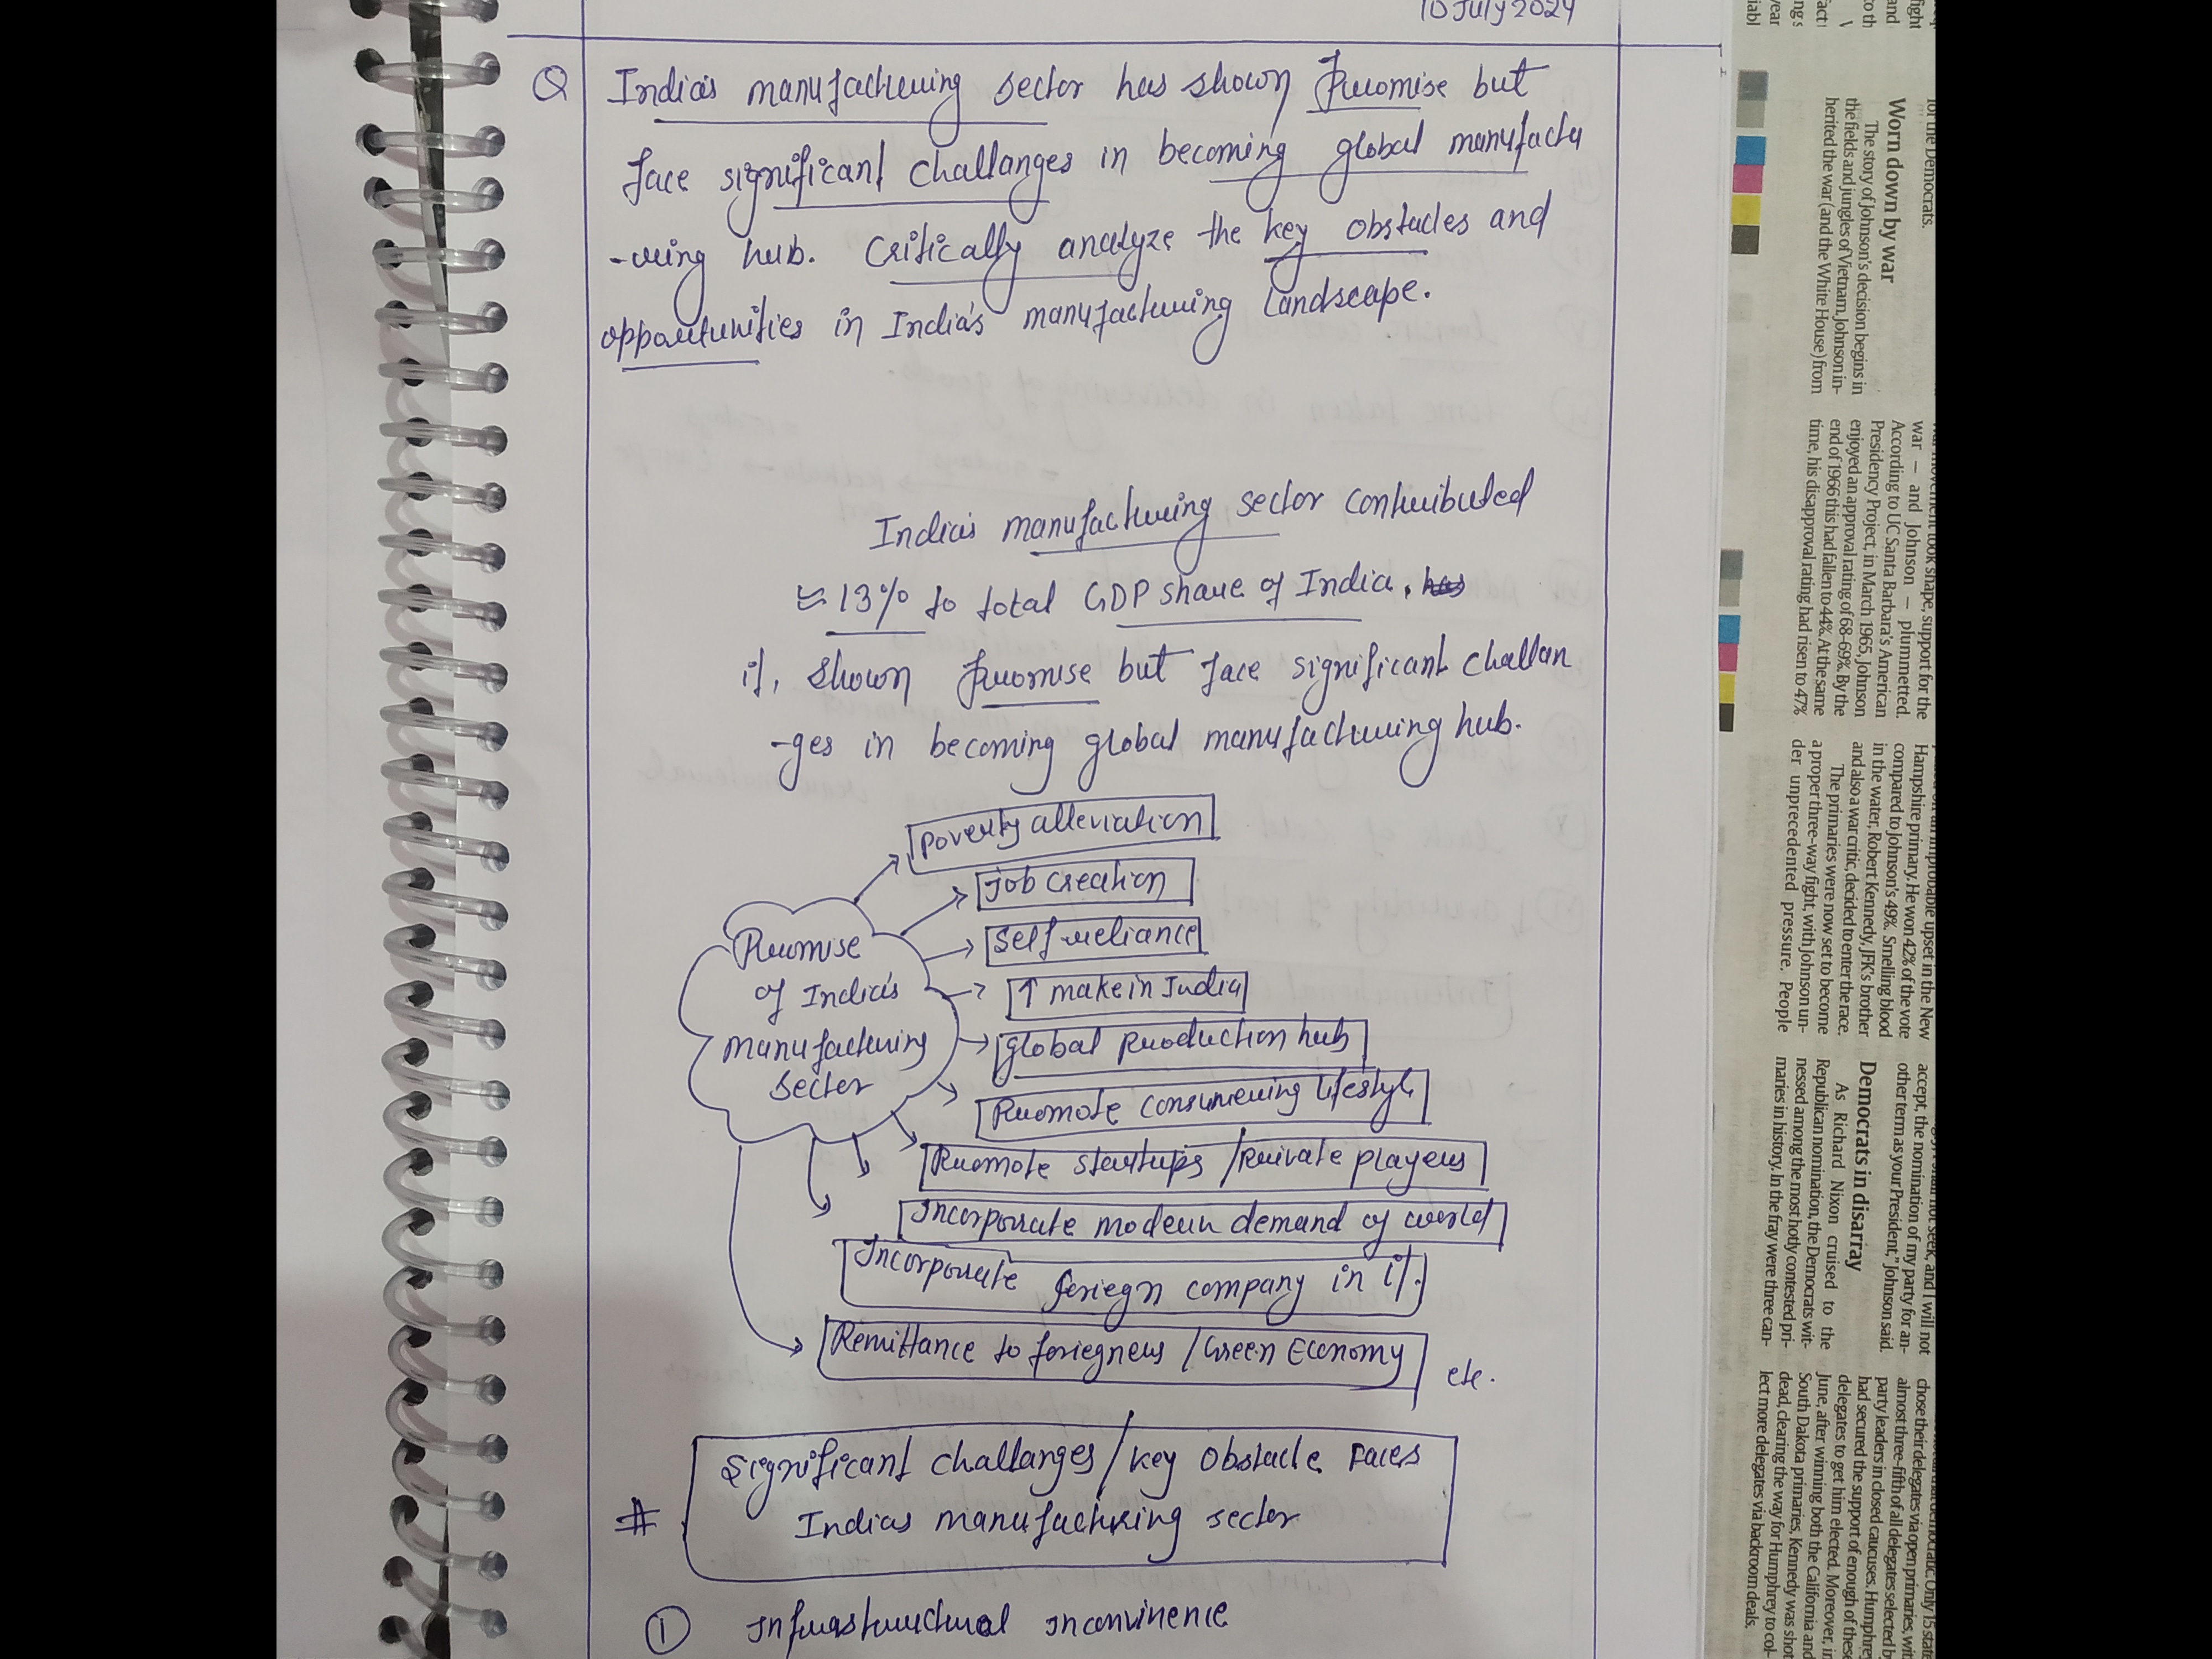 10 July 2024
Q India's manufacturing sector has shown Promise but
face significant challanges in becoming global manufactu
-uring hub. Critically analyze the key obstacles and
opportunities in India's manufacturing landscape.
India's manufacturing sector contributed
≈ 13% to total GDP share of India. has
it, shown promise but face significant challan
-ges in becoming global manufacturing hub.
Promise
of India's
manufacturing
sector
Poverty alleviation
Job creation
Self reliance
↑ make in India
global production hub
Promote consumering lifestyle
Promote startups / Private players
Incorporate modern demand of world
Incorporate foriegn company in it.
Remittance to foriegners / Green Economy etc.
# Significant challanges / key obstacle Faces
Indias manufacturing sector
① Infrastructural inconvinence
for the Democrats.
Worn down by war
The story of Johnson's decision begins in
the fields and jungles of Vietnam. Johnson in-
herited the war (and the White House) from
war — and Johnson — plummetted.
According to UC Santa Barbara's American
Presidency Project, in March 1965, Johnson
enjoyed an approval rating of 68-69%. By the
end of 1966 this had fallen to 44%. At the same
time, his disapproval rating had risen to 47%
Hampshire primary. He won 42% of the vote
compared to Johnson's 49%. Smelling blood
in the water, Robert Kennedy, JFK's brother
and also a war critic, decided to enter the race.
The primaries were now set to become
a proper three-way fight, with Johnson un-
der unprecedented pressure. People
accept, the nomination of my party for an-
other term as your President," Johnson said.
Democrats in disarray
As Richard Nixon cruised to the
Republican nomination, the Democrats wit-
nessed among the most hotly contested pri-
maries in history. In the fray were three can-
chose their delegates via open primaries, wit
almost three-fifth of all delegates selected b
party leaders in closed caucuses. Humphrey
had secured the support of enough of these
delegates to get him elected. Moreover, in
June, after winning both the California and
South Dakota primaries, Kennedy was shot
dead, clearing the way for Humphrey to col-
lect more delegates via backroom deals.